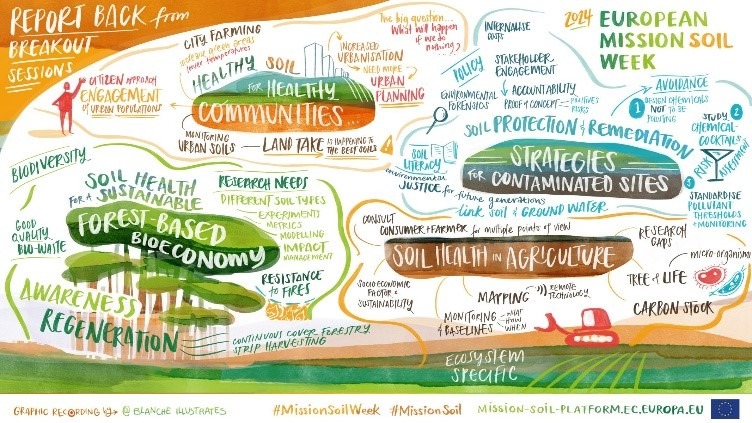 REPORT BACK from
BREAKOUT
SESSIONS
2024 EUROPEAN
MISSION SOIL
WEEK
CITY FARMING
lower temperatures
HEALTHY SOIL
FOR HEALTHY
COMMUNITIES...
CITIZEN APPROACH
ENGAGEMENT
OF URBAN POPULATIONS
INCREASED
URBANISATION
NEED MORE
URBAN
PLANNING
The big question...
What will happen
if we do
nothing?
MONITORING
URBAN SOILS
LAND TAKE IS HAPPENING TO
THE BEST SOILS
POLICY
INTERNALISE
COSTS
STAKEHOLDER
ENGAGEMENT
ACCOUNTABILITY
PROOF OF CONCEPT
POSITIVES
RISKS
ENVIRONMENTAL
FORENSICS
SOIL PROTECTION & REMEDIATION
STRATEGIES
FOR CONTAMINATED SITES
SOIL
LITERACY
environmental
JUSTICE for future generations
link SOIL & GROUND WATER
AVOIDANCE
1 DESIGN CHEMICALS
NOT TO BE
POLLUTING
2 STUDY
CHEMICAL
COCKTAILS
RISK ASSESSMENT
3 STANDARDISE
POLLUTANT
THRESHOLDS
+ MONITORING
BIODIVERSITY
SOIL HEALTH
FOR A SUSTAINABLE
FOREST-BASED
BIOECONOMY
GOOD
QUALITY
BIO-WASTE
RESEARCH NEEDS
DIFFERENT SOIL TYPES
EXPERIMENTS
METRICS
MODELLING
IMPACT
MANAGEMENT
RESISTANCE
to FIRES
AWARENESS
REGENERATION
CONTINUOUS COVER FORESTRY
STRIP HARVESTING
CONSULT
CONSUMER + FARMER for multiple points of view
SOIL HEALTH IN AGRICULTURE
SOCIO-ECONOMIC
FACTOR &
SUSTAINABILITY
MAPPING
REMOTE
TECHNOLOGY
MONITORING
& BASELINES
WHAT
HOW
WHEN
RESEARCH
GAPS
micro-organisms
TREE of LIFE
CARBON STOCK
ECOSYSTEM
SPECIFIC
GRAPHIC RECORDING by @ BLANCHE ILLUSTRATES
#MissionSoilWeek #MissionSoil MISSION-SOIL-PLATFORM.EC.EUROPA.EU